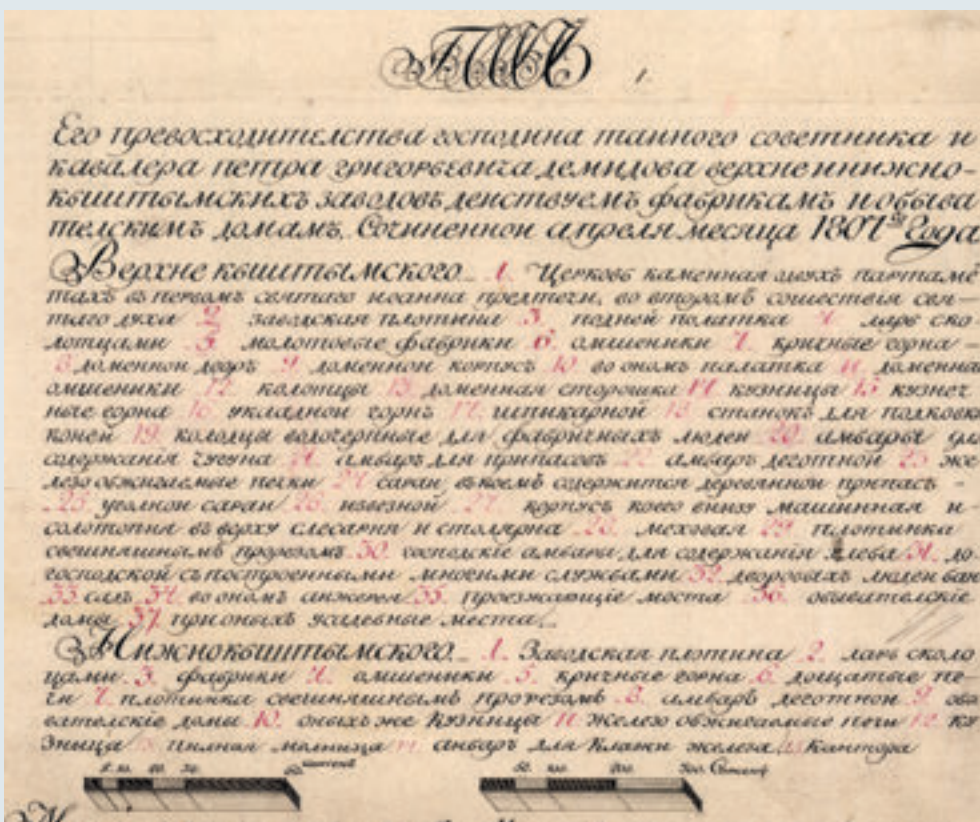 Его превосходителства господина таиного советника и
кавалера петра григорьевича демидова верхне инижно-
кыштымскихъ заводовъ деиствуемъ фабрикамъ и обыва
телскимъ домамъ. Сочиненнои апреля месяца 1807го Года
Верхне кыштымского 1. Церковь каменная двухъ
тахъ въ первомъ святаго иоанна предтечи, во второмъ сошествия свя-
таго духа 2 заводская плотина 3. палатка 4 ларь ско
лотцами 5 молотовые фабрики 6. омшеники 7. кричные горна -
8 доменнои дворъ 9 доменнои корпусъ 10. во ономъ палатка 11. доменна
омшеники 12. колотцы 13. доменная сторошка 14 кузницы 15 кузнеч
ные горна 16 укладнои горнъ 17. шпикарной 18 станокъ для подковк
конеи 19 колодцы водочерпные для фабричныхъ людеи 20 амбары для
содержания чугуна 21 амбаръ для припасовъ 22 амбаръ деготнои 23 же
лезо обжигаемые печки 24 сараи въкоемъ содержится деревяннои припасъ -
25 уголнои сараи 26. извезнои 27 корпусъ коего внизу машинная и
въ верху слесарня и столярна 28. меховая 29 плотинка
свешняшнымъ прорезомъ 30. господские амбары для содержания хлеба 31. до
господскои съпостроенными многими службами 32. дворовыхъ людеи бан
33. садъ 34. во ономъ анжереи 35. проезжающие моста 36. обывателские
домы 37. при оныхъ усадебные места.
Нижнокыштымского 1. Заводская плотина 2. ларь сколо
цами 3. фабрики 4. омшеники 5. кричные горна 6. дощатые пе
чи 7. плотинка свешняшнымъ прорезомъ 8. амбаръ деготнои 9 обы
вателские домы 10. оныхъ же кузницы 11 Железо обжигаемые печи 12. ку
зница 13 пилная мелница 14 анбаръ для клажи железа 15 Кантора
50. 100. 200. 300. Сажен